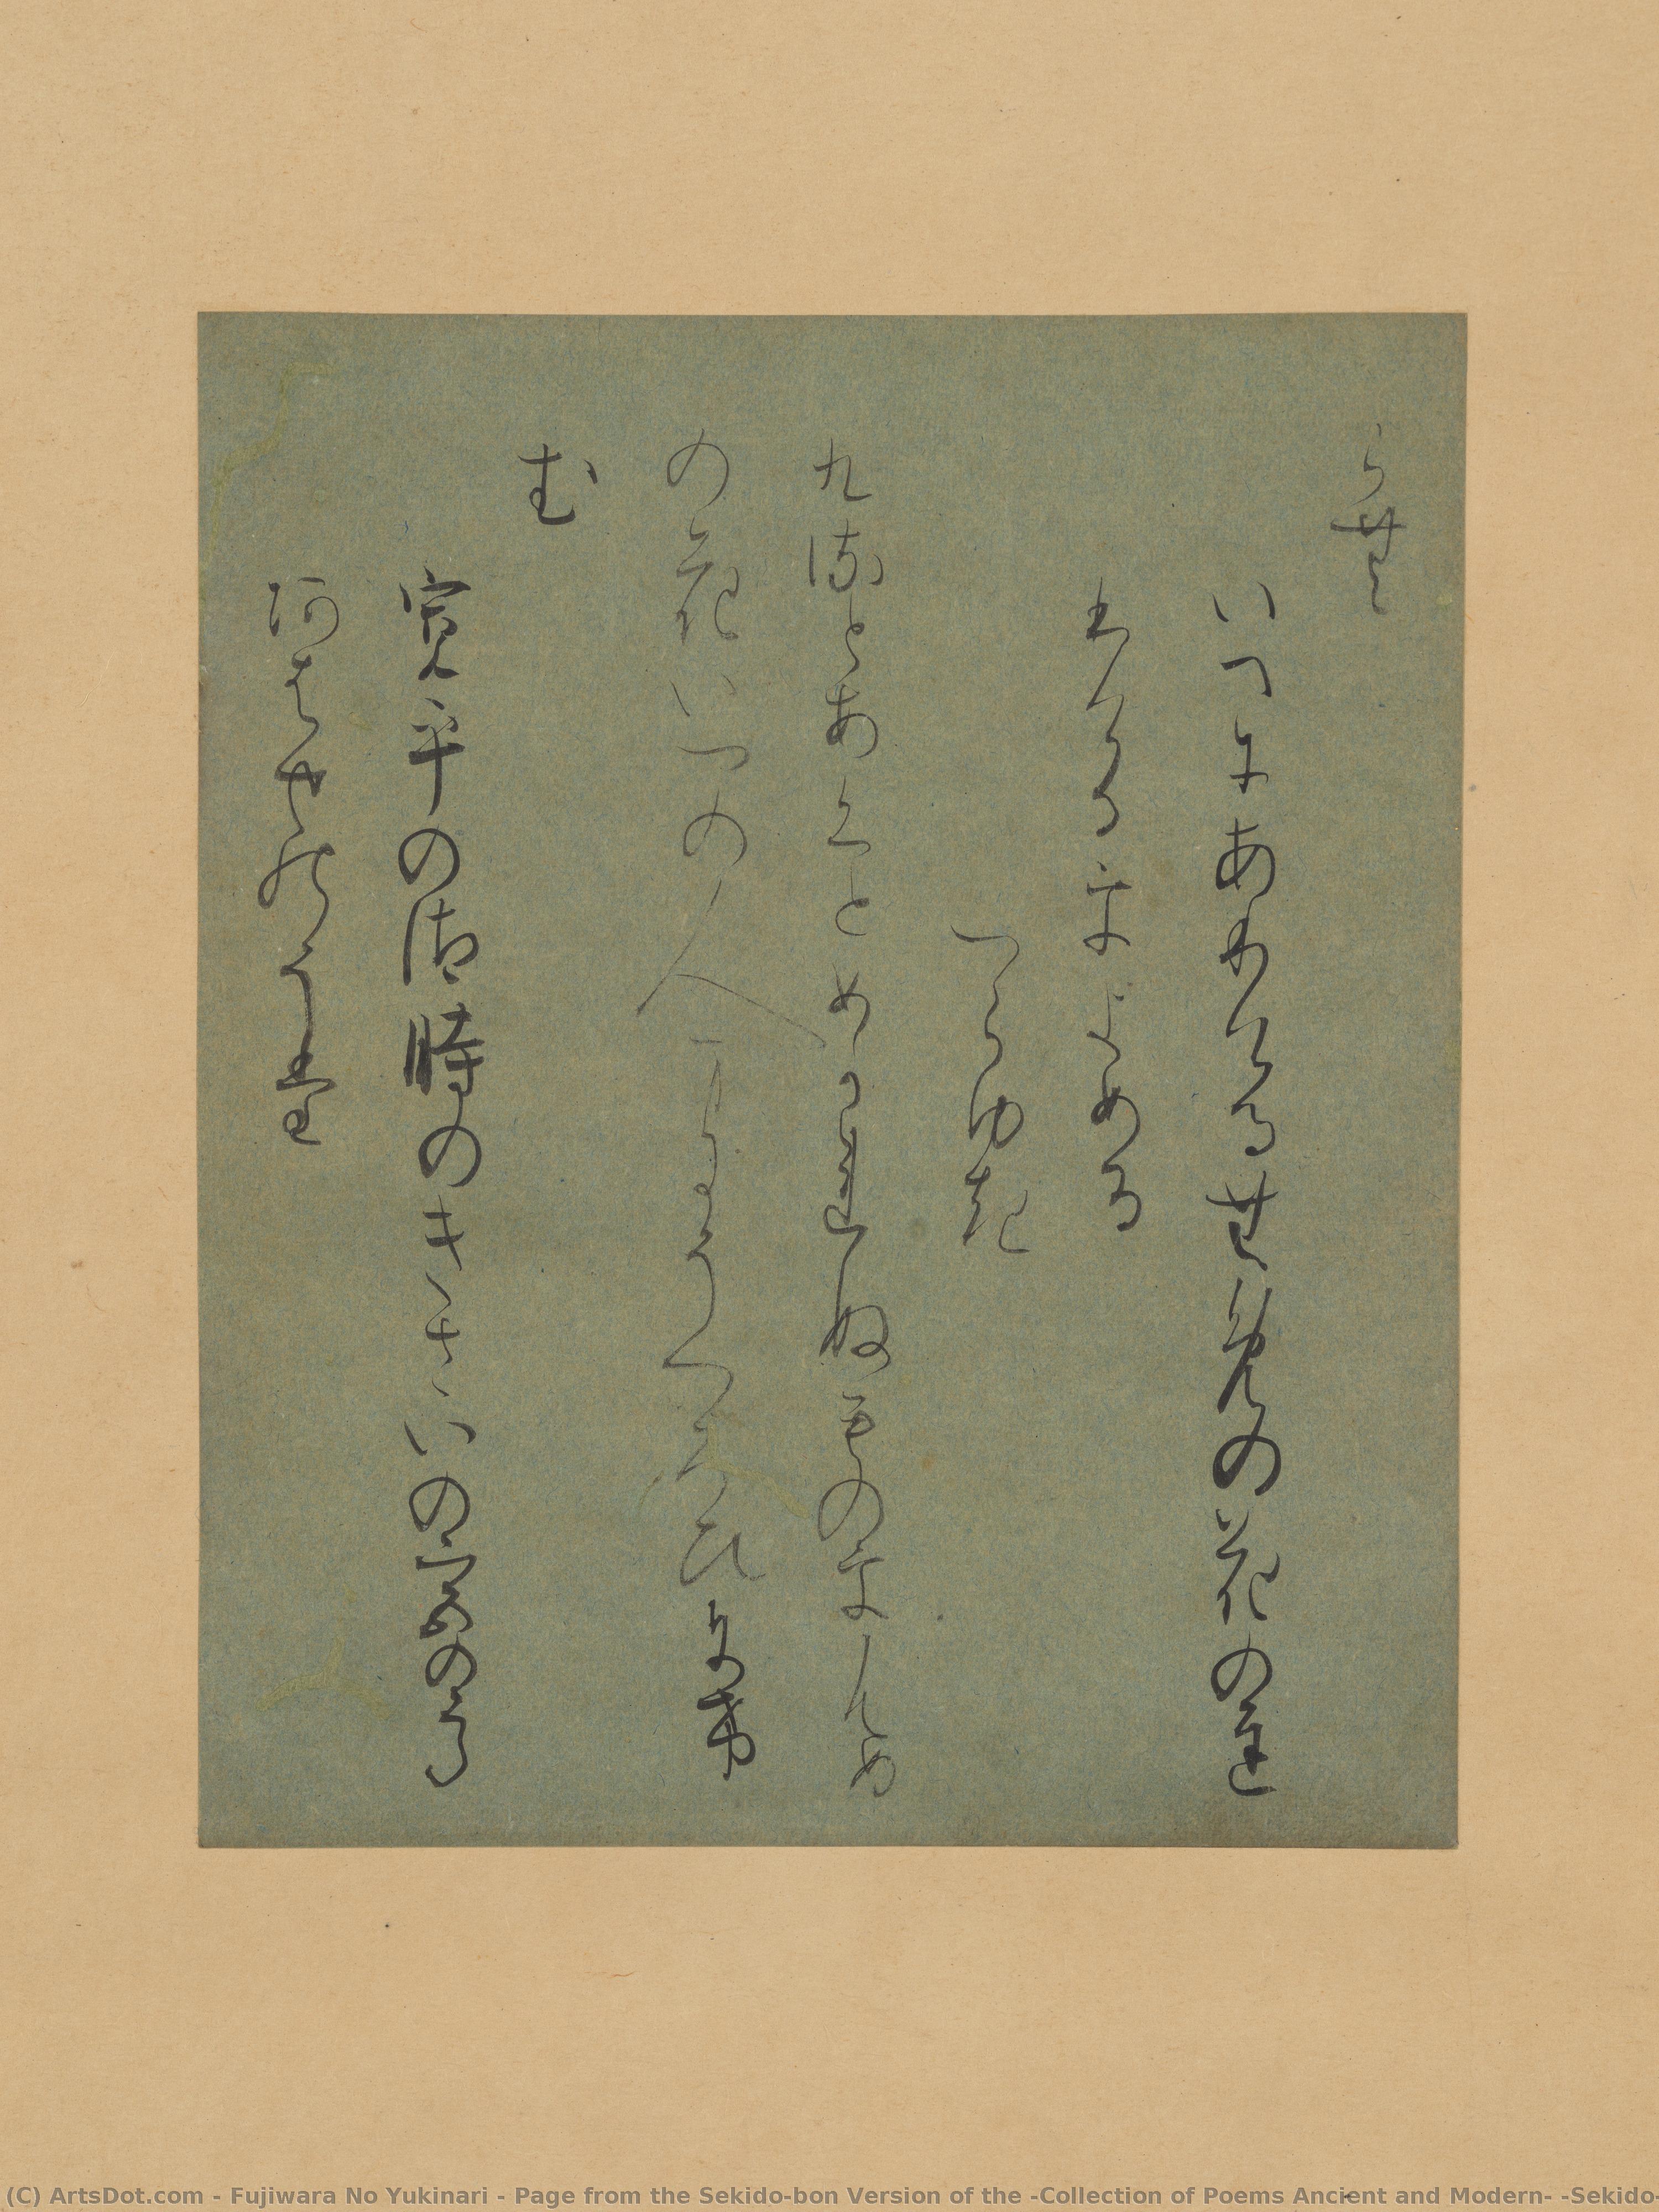 らむ
いへにありけるむめの花のち
りけるをよめる
つらゆき
くるとあくとめかれぬものをむめ
の花いつの人まにうつろひぬら
む
寛平の御時のきさいの宮のうた
あはせのうた
(C) ArtsDot.com - Fujiwara No Yukinari - Page from the Sekido-bon Version of the -Collection of Poems Ancient and Modern- -Sekido-